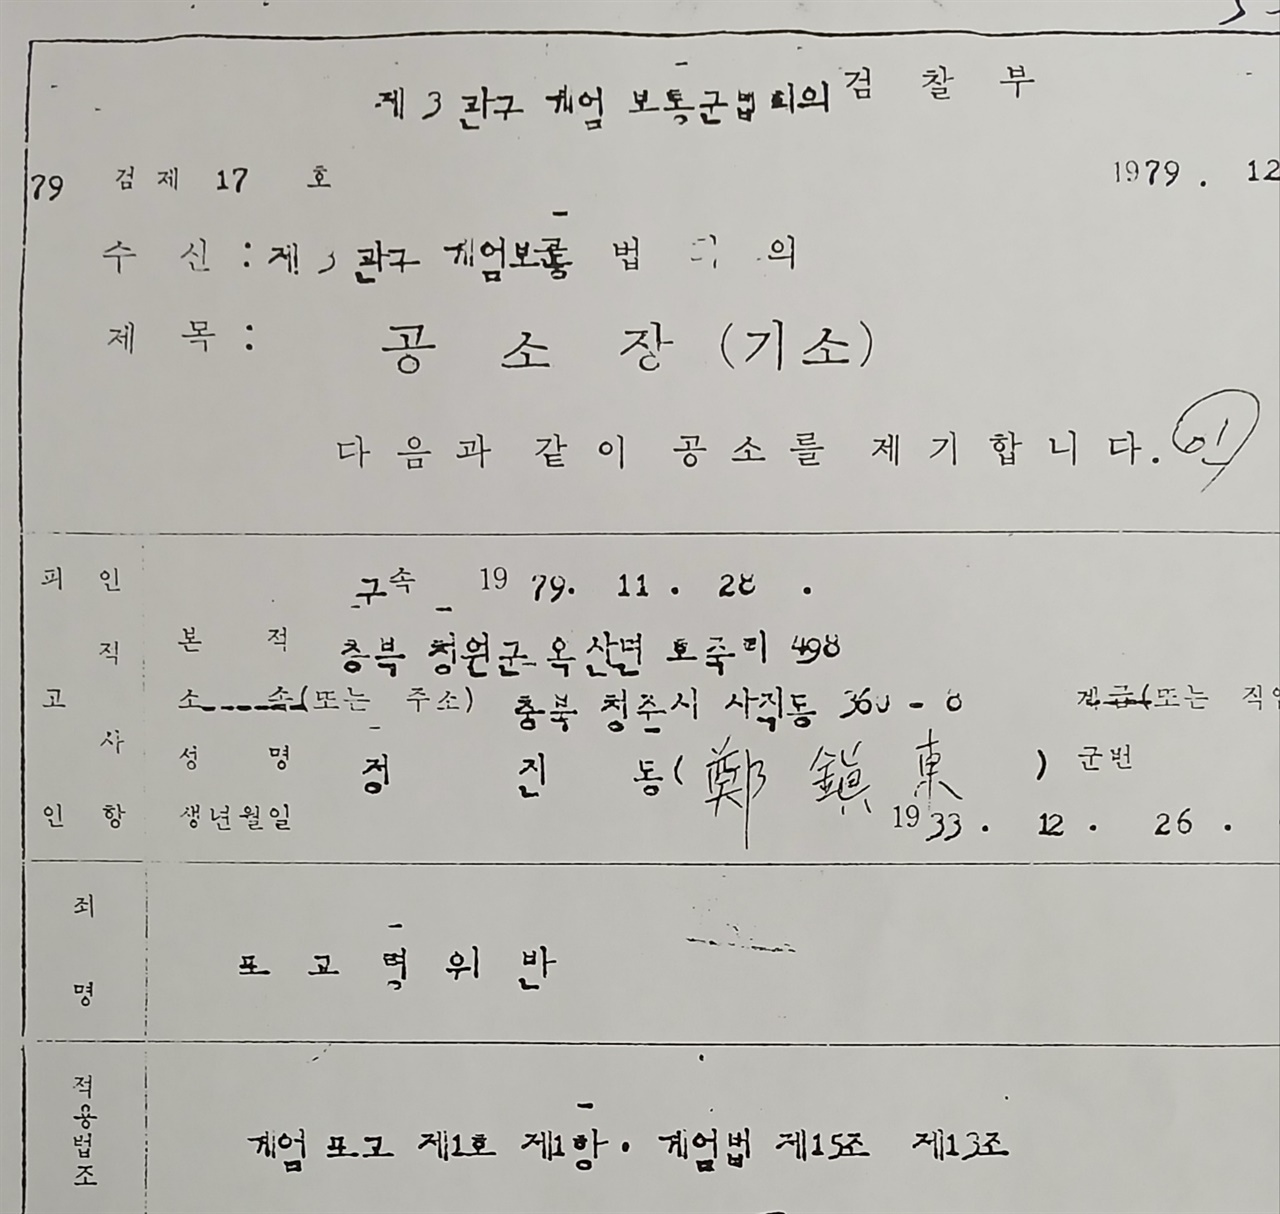 제3관구 계엄 보통군법회의 검찰부
79 검제 17 호 1979. 12
수신: 제3관구 계엄보통군법회의
제목: 공소장(기소)
다음과 같이 공소를 제기합니다. 인
피고인 인적사항
구속 1979. 11. 28.
본적 충북 청원군 옥산면 호죽리 498
소속(또는 주소) 충북 청주시 사직동 360-8 계급(또는 직업
성명 정진동(鄭鎭東) 군번
생년월일 1933. 12. 26.
죄명 포고령위반
적용법조 계엄포고 제1호 제1항. 계엄법 제15조 제13조